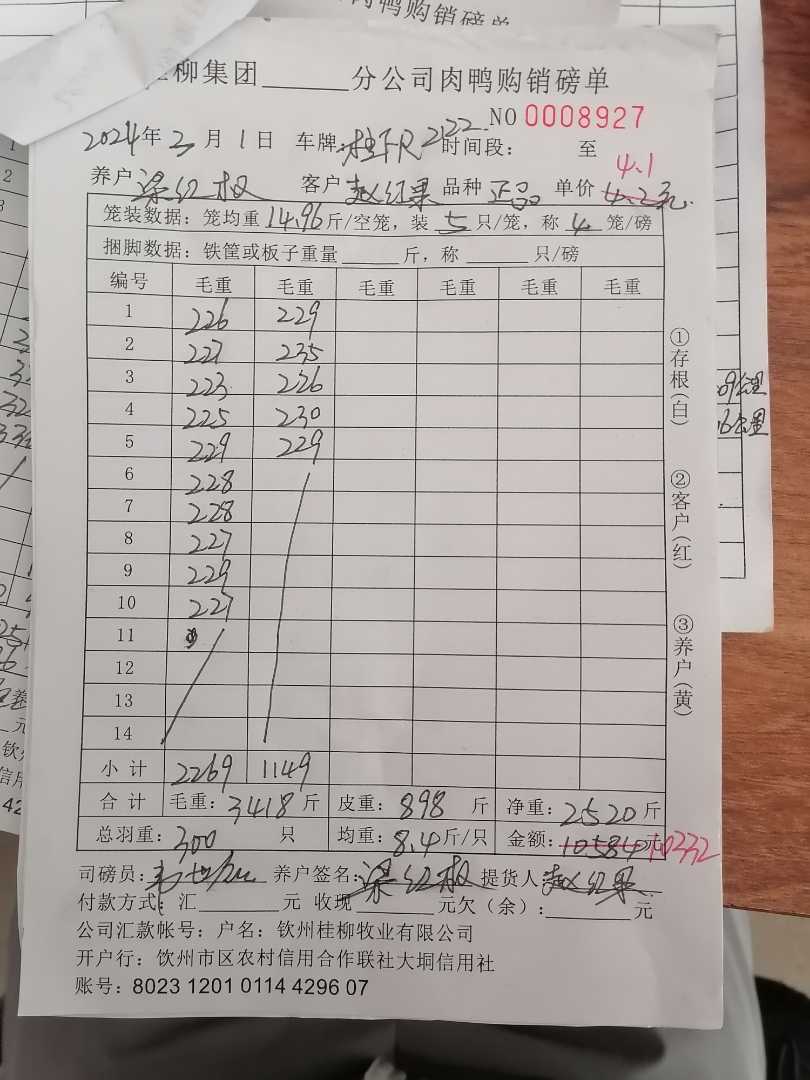 肉鸭购销磅单
柳集团______分公司肉鸭购销磅单
NO 0008927
2024年3月1日 车牌: 桂FR2122 时间段: 至
4.1
养户 梁红权 客户 赵红果 品种 正品 单价 4.2元
笼装数据: 笼均重 14.96 斤/空笼, 装 5 只/笼, 称 4 笼/磅
捆脚数据: 铁筐或板子重量______斤, 称______只/磅
编号 毛重 毛重 毛重 毛重 毛重 毛重
1 226 229
2 227 235
3 223 226
4 225 230
5 229 229
6 228
7 228
8 227
9 229
10 227
11
12
13
14
小计 2269 1149
合计 毛重: 3418 斤 皮重: 898 斤 净重: 2520 斤
总羽重: 300 只 均重: 8.4 斤/只 金额: 10584元 10332
司磅员: 养户签名: 梁红权 提货人: 赵红果
付款方式: 汇______元 收现______元欠(余):______元
公司汇款帐号: 户名: 钦州桂柳牧业有限公司
开户行: 钦州市区农村信用合作联社大垌信用社
账号: 8023 1201 0114 4296 07
①存根(白)
②客户(红)
③养户(黄)